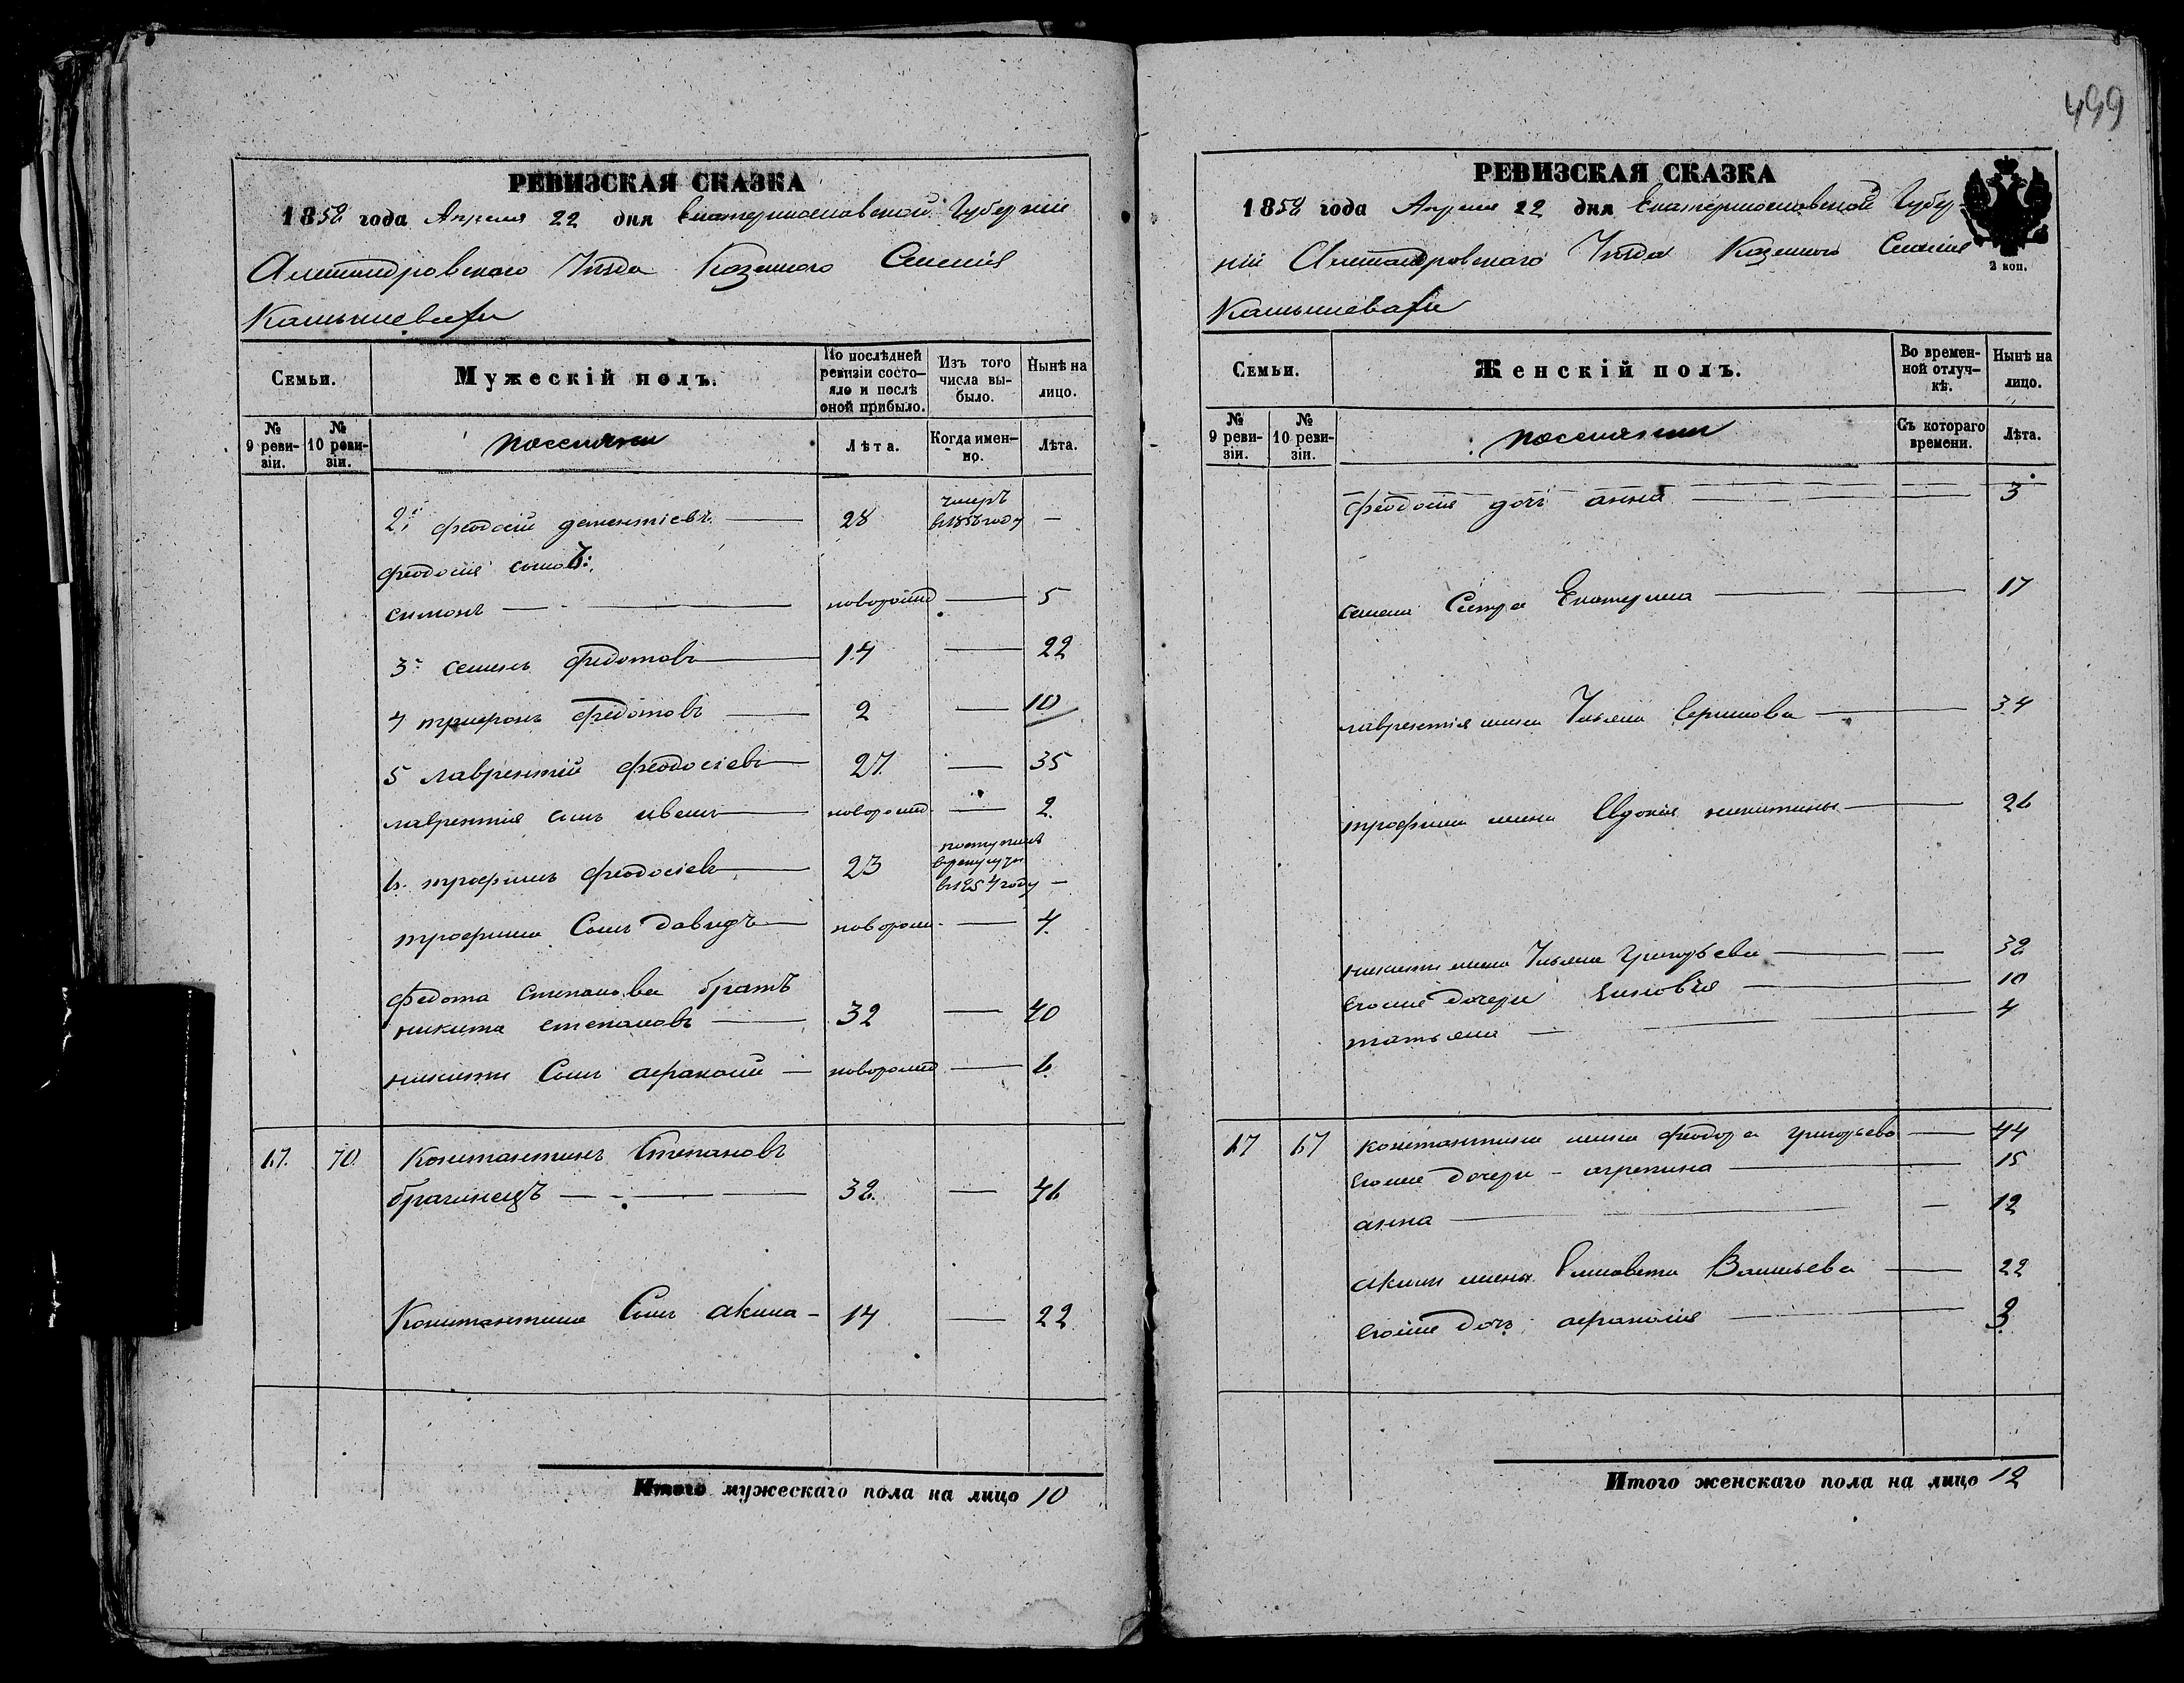 РЕВИЗСКАЯ СКАЗКА
1858 года Апреля 22 дня Екатеринославской Губерніи
Александровскаго Уѣзда Казенного Селенія
Камышевахи
Семьи.
Мужескій полъ.
По послѣдней ревизіи состояло и послѣ оной прибыло.
Изъ того числа выбыло.
Нынѣ на лицо.
№ 9 ревизіи.
№ 10 ревизіи.
поселяни
Лѣта.
Когда именно.
Лѣта.
2й феодосій дементіевъ 28 умеръ в 1856 году —
феодосія сыновъ:
симонъ новорожд 5
3й семенъ федотовъ 14 — 22
4 трифонъ федотовъ 2 — 10
5 лаврентій феодосіевъ 27 — 35
лаврентія сынъ иванъ новорожд 2
6. трофимъ феодосіевъ 23 поступилъ в рекруты в 1854 году —
трофима Сынъ давидъ новорож. — 4
федота степанова братъ
никита степановъ 32 — 40
никиты Сынъ афанасій новорожд — 6
67. 70. Константинъ Степановъ
брагинецъ 38. — 46
Константина Сынъ акима 14 — 22
Итого мужескаго пола на лицо 10
499
РЕВИЗСКАЯ СКАЗКА
1858 года Апреля 22 дня Екатеринославской Губер-
ніи Александровскаго Уѣзда Казенного Селенія
2 коп.
Камышевахи
Семьи.
Женскій полъ.
Во временной отлучкѣ.
Нынѣ на лицо.
№ 9 ревизіи.
№ 10 ревизіи.
поселянки
Съ котораго времени.
Лѣта.
феодосія дочь анна 3
семена Сестра Екатерина 17
лаврентія жена Ульяна 34
трофима жена Евдокія никитина 26
никиты жена Ульяна григорьева 32
егоже дочери Зиновія 10
татьяна 4
67 67 константина жена феодора григорьева 44
егоже дочери - агрепина 15
анна 12
акима жена Елисавета Васильева 22
егоже дочь афанасія 3
Итого женскаго пола на лицо 12